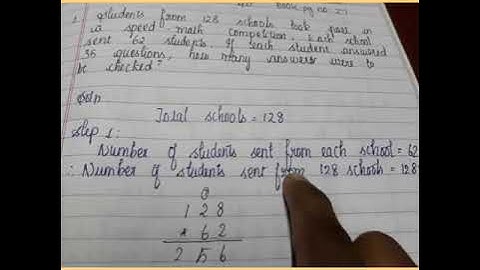 Book pg no. 27
1. Students from 128 schools took part in
a speed math competition. Each school
sent 62 students. If each student answered
35 questions, how many answers were to
be checked?
Soln
Total schools = 128
Step 1:
Number of students sent from each school = 62
∴ Number of students sent from 128 schools = 128
1 2 8
* 6 2
2 5 6